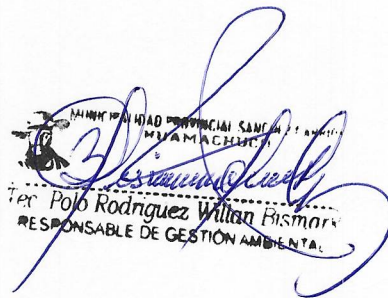 MUNICIPALIDAD PROVINCIAL SANCHEZ CARRION
HUAMACHUCO
Tec. Polo Rodriguez Willan Bismark
RESPONSABLE DE GESTIÓN AMBIENTAL